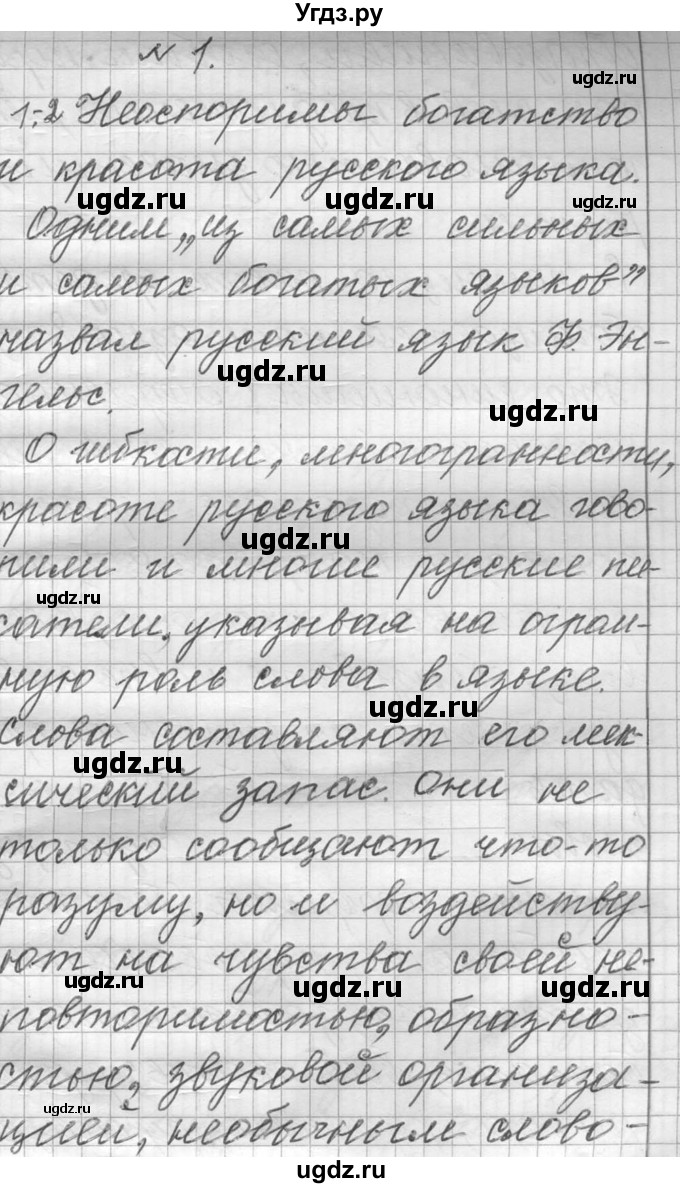 Угдз.ру
№ 1.
1-2 Неоспоримы богатство
и красота русского языка.
Одним „из самых сильных
и самых богатых языков”
назвал русский язык Ф. Эн-
гельс.
О гибкости, многогранности,
красоте русского языка гово-
рили и многие русские пи-
сатели, указывая на огром-
ную роль слова в языке.
Слова составляют его лек-
сический запас. Они не
только сообщают что-то
разуму, но и воздейству-
ют на чувства своей не-
повторимостью, образно-
стью, звуковой организа-
цией, необычным слово-
ugdz.ru
ugdz.ru
ugdz.ru
ugdz.ru
ugdz.ru
ugdz.ru
ugdz.ru
ugdz.ru
ugdz.ru
ugdz.ru
ugdz.ru
ugdz.ru
ugdz.ru
ugdz.ru